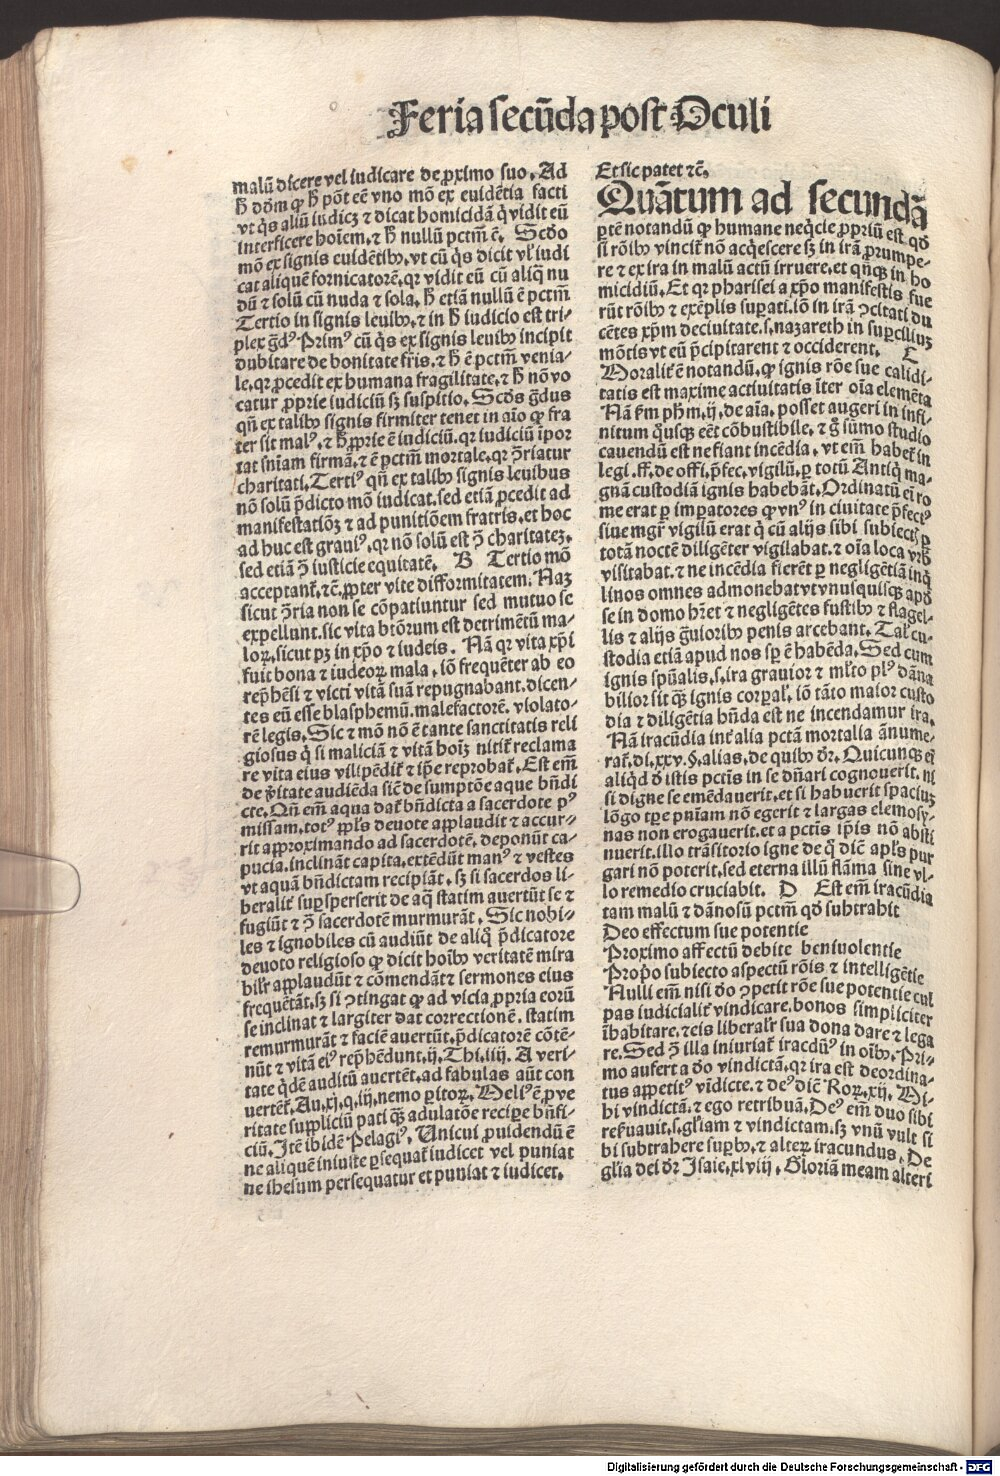 Feria secūda post Oculi
malū dicere vel iudicare de ꝓximo suo. Ad
ħ dōm ꝙ ħ pōt eē vno mō ex euidētia facti
vt q̄s aliū iudicꝫ ⁊ dicat homicidā q̄ vidit eū
interficere hoīem. ⁊ ħ nullū pctm̄ ē. Scd̄o
mō ex signis euidētibꝰ, vt cū q̄s dicit vl̓ iudi
cat aliquē fornicatorē, qꝛ vidit eū cū aliq̄ nu
dū ⁊ solū cū nuda ⁊ sola. ħ etiā nullū ē pctm̄
Tertio in signis leuibꝰ, ⁊ in ħ iudicio est tri-
plex gͣdꝰ Primꝰ cū q̄s ex signis leuibꝰ incipit
dubitare de bonitate fr̄is. ⁊ ħ ē pctm̄ venia-
le, qꝛ ꝓcedit ex humana fragilitate. ⁊ ħ nō vo
catur ꝓprie iudiciū sꝫ suspitio. Scd̄s gͣdus
qn̄ ex talibꝰ signis firmiter tenet in aīo ꝙ fra
ter sit malꝰ. ⁊ ħ ꝓprie ē iudiciū. qꝛ iudiciū īpor
tat sniam firmā. ⁊ ē pctm̄ mortale. qꝛ ꝯ̄riatur
charitati. Tertiꝰ qn̄ ex talibꝰ signis leuibus
nō solū p̄dicto mō iudicat. sed etiā ꝓcedit ad
manifestatiōꝫ ⁊ ad punitiōem fratris. et hoc
ad huc est grauiꝰ, qꝛ nō solū est ꝯ̄ charitatez.
sed etiā ꝯ̄ iusticie equitatē. B Tertio mō
acceptant̓. ⁊c̄. ꝓpter vite difformitatem. Naꝫ
sicut ꝯ̄ria non se cōpatiuntur sed mutuo se
expellunt. sic vita btōrum est detrimētū ma-
loꝝ. sicut pꝫ in xp̄o ⁊ iudeis. Nā qꝛ vita xp̄i
fuit bona ⁊ iudeoꝝ mala. iō frequēter ab eo
rep̄hēsi ⁊ victi vitā suā repugnabant. dicen-
tes eū esse blasphemū. malefactorē. violato-
rē legis. Sic ⁊ mō nō ē tante sanctitatis reli
giosus q̄ si maliciā ⁊ vitā hoīꝫ nitit̓ reclama
re vita eius vilipēdit̓ ⁊ ip̄e reprobat̓. Est em̄
de v̓itate audiēda sic̄ de sumptōe aque bn̄di
cte. Qn̄ em̄ aqua dat̓ bn̄dicta a sacerdote pꝰ
missam. totꝰ ppl̓s deuote applaudit ⁊ accur-
rit approximando ad sacerdotē, deponūt ca-
pucia. inclināt capita. extēdūt manꝰ ⁊ vestes
vt aquā bn̄dictam recipiāt. sꝫ si sacerdos li-
beralit̓ suꝑsperserit de aq̄ statim auertūt se ⁊
fugiūt ⁊ ꝯ̄ sacerdotē murmurāt. Sic nobi-
les ⁊ ignobiles cū audiūt de aliq̄ p̄dicatore
deuoto religioso ꝙ dicit hoībꝰ veritatē mira
bilr̓ applaudūt ⁊ cōmendāt ⁊ sermones eius
frequētāt. sꝫ si ꝯtingat ꝙ ad vicia ꝓpria eorū
se inclinat ⁊ largiter dat correctionē. statim
remurmurāt ⁊ faciē auertūt. p̄dicatorē cōtē-
nūt ⁊ vitā eiꝰ rep̄hēdunt. ij. Thi. iiij. A veri-
tate q̄dē auditū auertēt. ad fabulas aūt con
uertēt̓. Au. xj. q. iij. nemo ꝑitoꝝ. Meliꝰ ē ꝓ ve
ritate suppliciū pati qͣꝫ adulatōe reciꝑe bn̄fi-
ciū. Itē ibidē Pelagiꝰ. Unicui ꝓuidendū ē
ne aliquē iniuste ꝑsequat̓ iudicet vel puniat
ne ihesum persequatur et puniat ⁊ iudicet.
Et sic patet ⁊c̄.
Quātum ad secundā
ꝑtē notandū ꝙ humane neq̄cie ꝓpriū est qd̓
si rōibꝰ vincit̓ nō acq̄escere sꝫ in irā ꝓrumpe-
re ⁊ ex ira in malū actū irruere. et qn̄qꝫ in ho
micidiū. Et qꝛ pharisei a xp̄o manifestis fue
rūt rōibꝰ ⁊ exēplis suꝑati. iō in irā ꝯcitati du
cētes xp̄m deciuitate. s. nazareth in suꝑciliuꝫ
mōtis vt eū p̄cipitarent ⁊ occiderent. C
Moralit̓ ē notandū, ꝙ ignis rōe sue calidi-
tatis est maxime actiuitatis īter oīa elemēta
Nā ẜm ph̄m. ij. de aīa. posset augeri in infi-
nitum q̄usqꝫ eēt cōbustibile. ⁊ g̓ sūmo studio
cauendū est ne fiant incēdia. vt em̄ habet̓ in
legi. ff. de offi. p̄fec. vigilū. ꝑ totū Antiq̄ ma-
gnā custodiā ignis habebāt. Ordinatū ei̓ ro
me erat ꝑ imꝑatores ꝙ vnꝰ in ciuitate p̄fectꝰ
siue mgr̄ vigilū erat q̄ cū alijs sibi subiectꝭ ꝑ
totā noctē diligēter vigilabat. ⁊ oīa loca vrb̓
visitabat. ⁊ ne incēdia fierēt ꝑ negligētiā inq̄
linos omnes admonebat vt vnusquisqꝫ apd̓
se in domo hr̄et ⁊ negligētes fustibꝰ ⁊ flagel-
lis ⁊ alijs gͣuioribꝰ penis arcebant. Tal̓ cu-
stodia etiā apud nos sꝑ ē habēda. Sed cum
ignis spūalis. s. ira grauior ⁊ ml̓to plꝰ dāna
bilior sit qͣꝫ ignis corꝑal̓. iō tāto maior custo
dia ⁊ diligētia hn̄da est ne incendamur ira.
Nā iracūdia int̓ alia pctā mortalia ānume-
rat̓. di. xxv. §. alias. de quibꝰ dr̄. Quicunqꝫ ei̓
aliq̄d d̓ istis pctīs in se dn̄ari cognouerit. ni
si digne se emēdauerit. et si habuerit spaciuꝫ
lōgo tꝑe pn̄iam nō egerit ⁊ largas elemosy-
nas non erogauerit. et a pctīs ip̄is nō absti
nuerit. illo trāsitorio igne de q̄ diē apl̓s pur
gari nō poterit. sed eterna illū flāma sine vl-
lo remedio cruciabit. D Est em̄ iracūdia
tam malū ⁊ dānosū pctm̄ qd̓ subtrahit
Deo effectum sue potentie
Proximo affectū debite beniuolentie
Propō subiecto aspectū rōis ⁊ intelligētie
Nulli em̄ nisi do ꝯpetit rōe sue potentie cul
pas iudicialit̓ vindicare. bonos simpliciter
īhabitare. ⁊ eis liberalr̓ sua dona dare ⁊ lega
re. Sed ꝯ̄ illa iniuriat̓ iracdūꝰ in oībꝰ. Pri-
mo aufert a do vindictā. qꝛ ira est deordina-
tus appetitꝰ vīdicte. ⁊ deꝰ diē Roꝝ. xij. Mi-
hi vindictā. ⁊ ego retribuā. Deꝰ em̄ duo sibi
ref̓uauit. s. gl̓iam ⁊ vindictam. sꝫ vnū vult si
bi subtrahere suꝑbꝰ. ⁊ alterꝝ iracundus. De
gl̓ia dei dr̄ Isaie. xlviij. Gloriā meam alteri
Digitalisierung gefördert durch die Deutsche Forschungsgemeinschaft - DFG